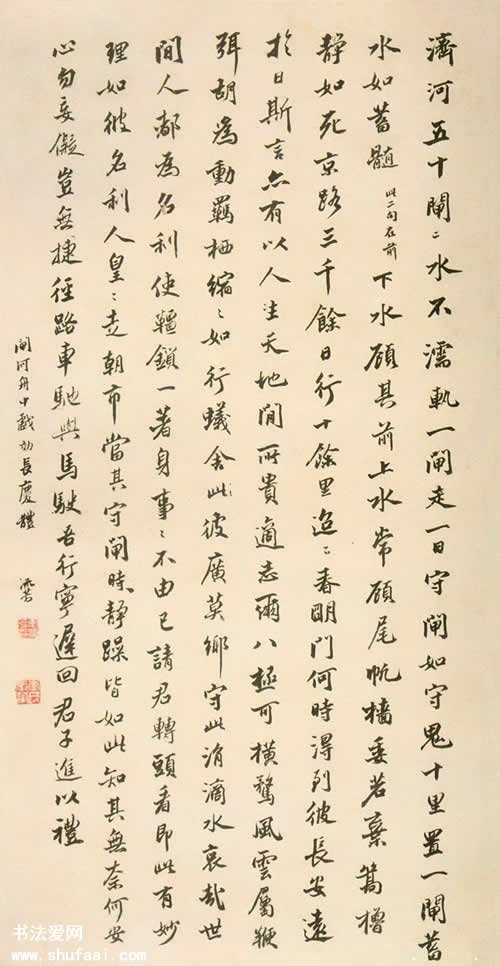 濟河五十閘ミ水不濡軌一閘走一日守閘如守鬼十里置一閘蓄
水如蓄髓此二句在前下水顧其前上水常顧尾帆檣委若棄篙櫓
靜如死京路三千餘日行十餘里迢ミ春明門何時得到彼長安遠
於日斯言亦有以人生天地間所貴適志爾八極可橫騖風雲屬鞭
弭胡為動羈栖縮ミ如行蟻舍此彼廣莫鄉守此涓滴水哀哉世
間人都為名利使韁鎖一著身事ミ不由己請君轉頭看即此有妙
理如彼名利人皇ミ走朝市當其守閘時靜躁皆如此知其無奈何安
心勿妄儗豈無捷徑路車馳與馬駛吾行寧遲回君子進以禮
閘河舟中戲效長慶體
書法爱网
www.shufaai.com